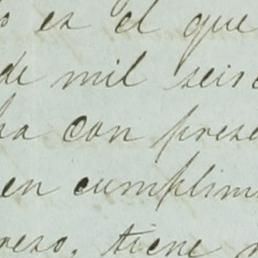 o es el que
de mil seis
ha con prese
en cumplim
reso, tiene